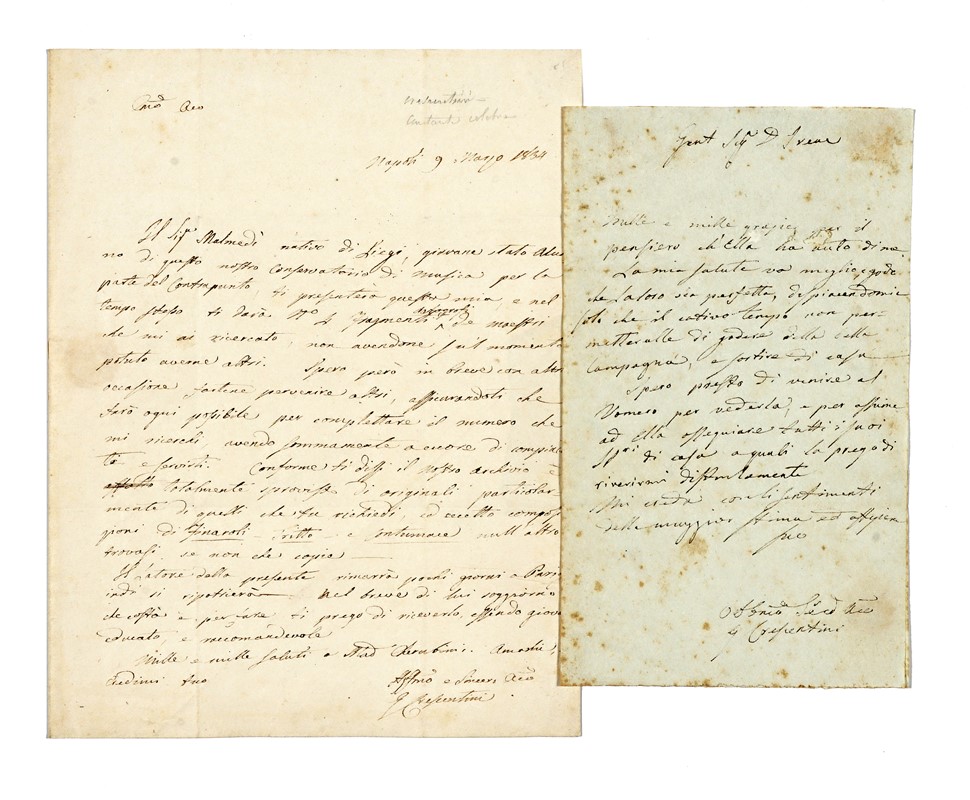 Napoli 9 Marzo 1834
Il Sig.r Malmedi nativo di Liegi, giovane stato Alun
no di questo nostro Conservatorio di Musica per la
parte del Contrapunto, ti presenterà questa mia, e nel
tempo stesso ti darà N.o 4 fragmenti autografi de maestri
che mi ai ricercato, non avendone sul momento
potuto averne altri. Spero però in breve con altra
occasione fartene pervenire altri, assicurandoti che
farò ogni possibile per complettare il numero che
mi ricerchi, avendo sommamente a cuore di compiacer
te e servirti. Conforme ti dissi il nostro archivio è
totalmente sprovisto di originali particolar
mente di questi che tu richiedi ed eccetto compos
zioni di Finaroli - Tritto - e null'altro
trovasi se non che copie
Il Latore della presente rimarrà pochi giorni a Parigi
indi si ripatrierà nel breve di lui soggiorno
ti prego di riceverlo, essendo giovane
educato e raccomandevole
Mille e mille saluti a Mad. Cherubini. Amami,
credimi tuo
Aff.mo e Sincero Aco
G Crescentini
Gent Sig D Irene
Mille e mille grazie per il
pensiero ch'Ella ha auto di me.
La mia salute va meglio, e godo
che la loro sia perfetta, dispiacendomi
solo che il cativo tempo non per-
metteralle di godere della bella
Campagna, e sortire di casa
Spero presto di venire al
Vomero per vederla, e per assieme
ad Ella ossequiare tutti i suoi
Spri di casa a quali la prego di
riverirmi distintamente
Mi creda con li sentimenti
della maggior stima ed affezione
G Crescentini